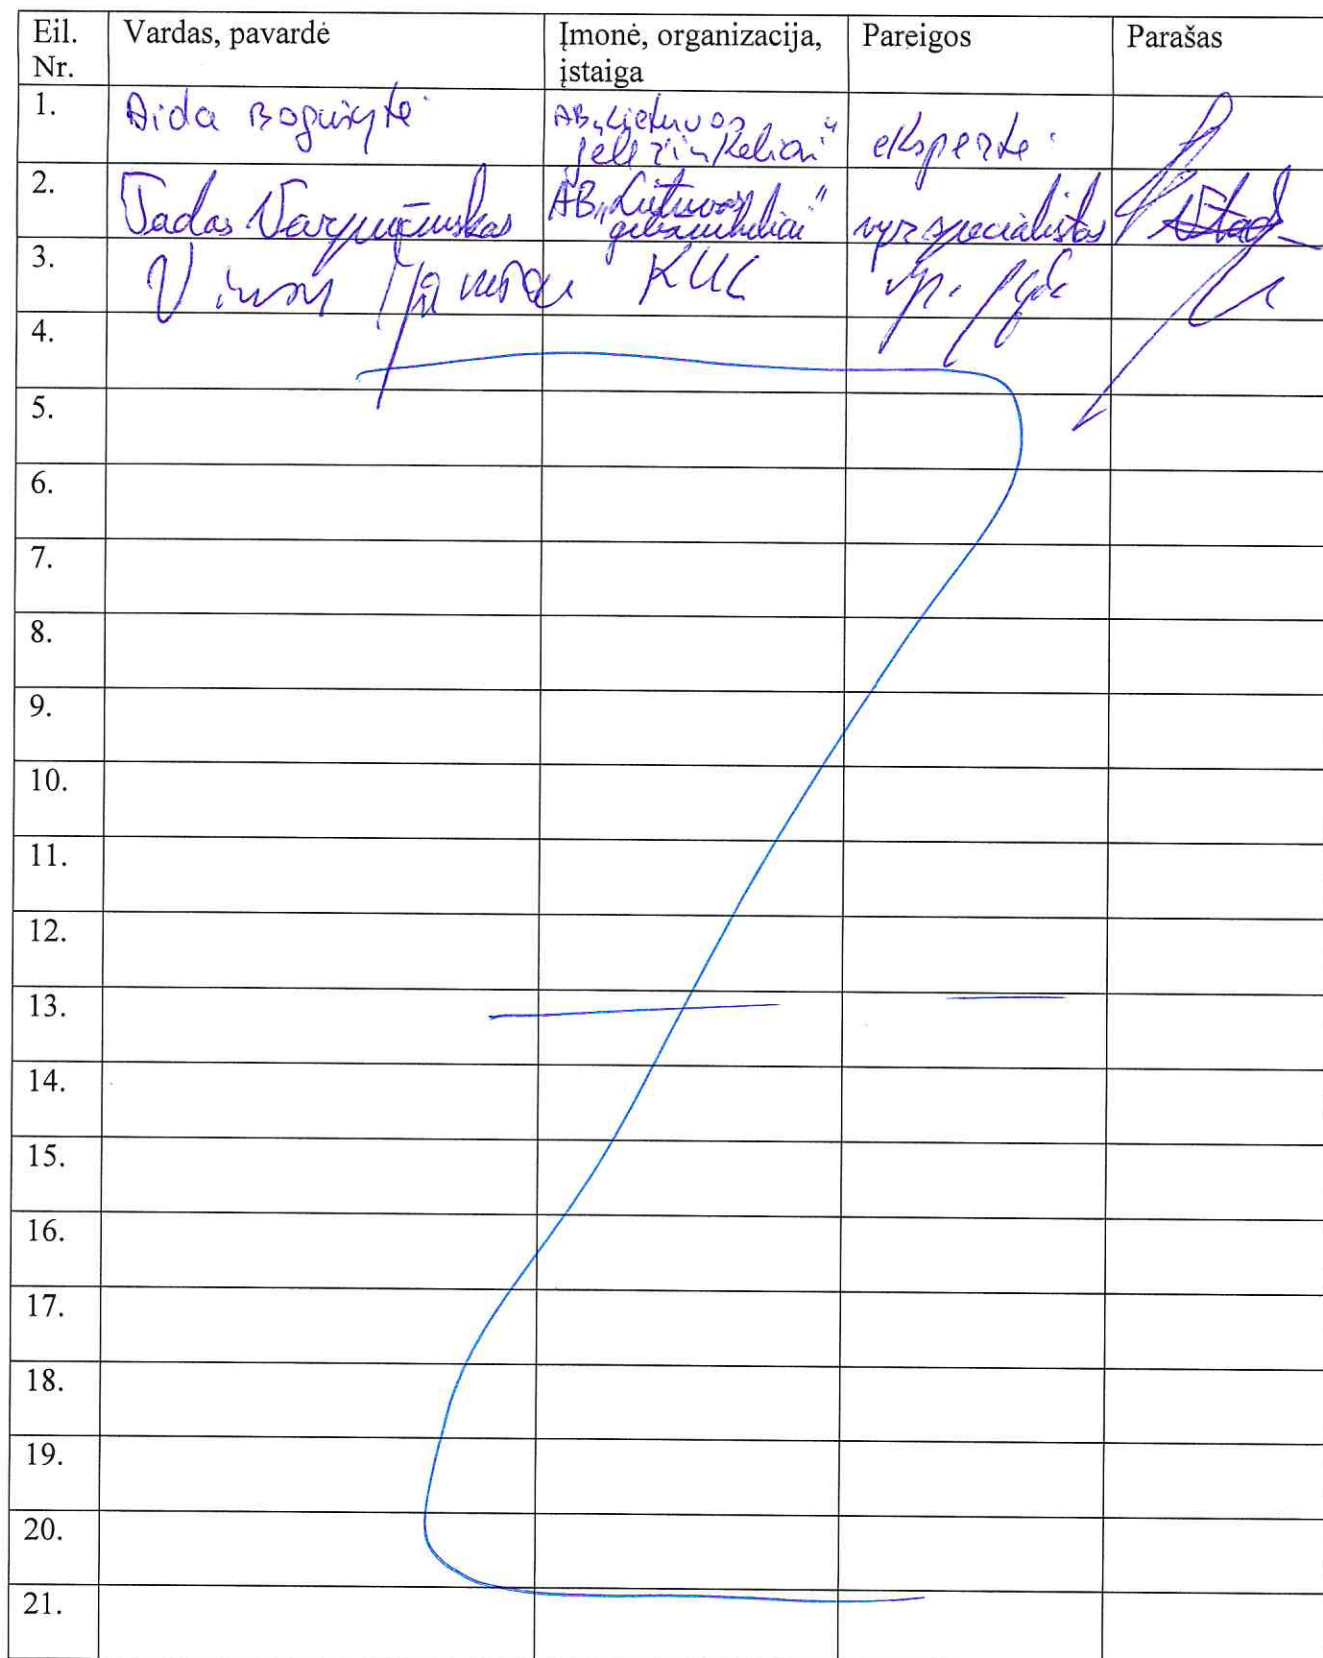 Eil. Nr. Vardas, pavardė Įmonė, organizacija, įstaiga Pareigos Parašas
1. Aida AB „Lietuvos geležinkeliai“ ekspertė
2. Tadas AB „Lietuvos geležinkeliai“ vyr. specialistas
3. KUC
4.
5.
6.
7.
8.
9.
10.
11.
12.
13.
14.
15.
16.
17.
18.
19.
20.
21.